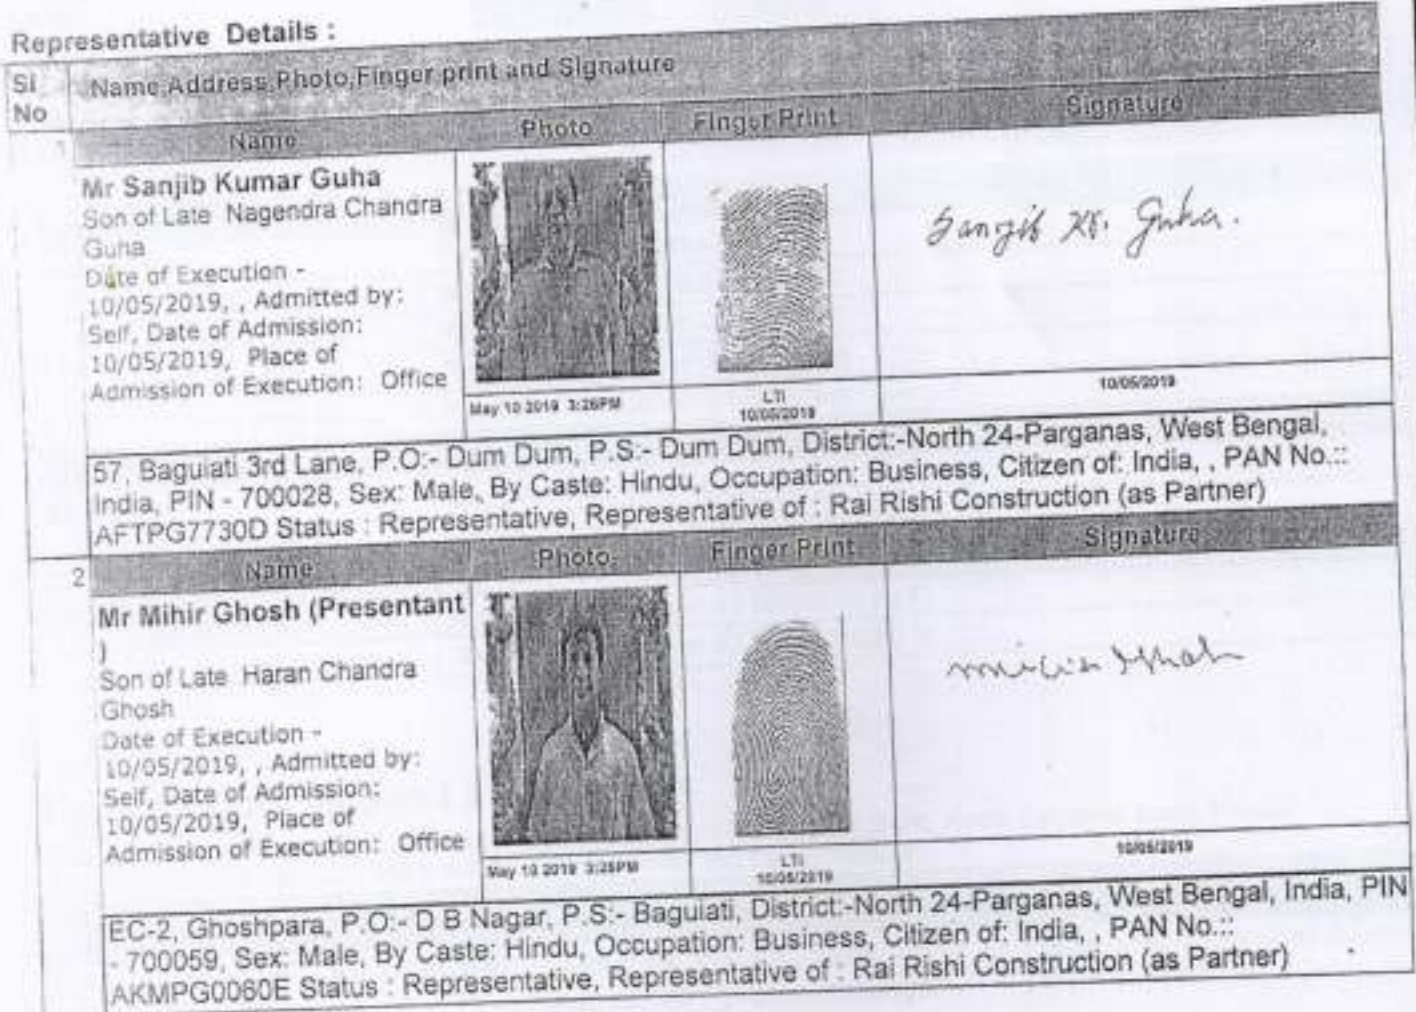 Representative Details :
Sl No
Name,Address,Photo,Finger print and Signature
1
Name Photo Finger Print Signature
Mr Sanjib Kumar Guha
Son of Late Nagendra Chandra
Guha
Date of Execution -
10/05/2019, , Admitted by:
Self, Date of Admission:
10/05/2019, Place of
Admission of Execution: Office
Sanjib Kr. Guha.
May 10 2019 3:26PM
LTI
10/05/2019
10/05/2019
57, Baguiati 3rd Lane, P.O:- Dum Dum, P.S:- Dum Dum, District:-North 24-Parganas, West Bengal,
India, PIN - 700028, Sex: Male, By Caste: Hindu, Occupation: Business, Citizen of: India, , PAN No.::
AFTPG7730D Status : Representative, Representative of : Rai Rishi Construction (as Partner)
2
Name Photo Finger Print Signature
Mr Mihir Ghosh (Presentant
)
Son of Late Haran Chandra
Ghosh
Date of Execution -
10/05/2019, , Admitted by:
Self, Date of Admission:
10/05/2019, Place of
Admission of Execution: Office
Mihir Ghosh
May 10 2019 3:25PM
LTI
10/05/2019
10/05/2019
EC-2, Ghoshpara, P.O:- D B Nagar, P.S:- Baguiati, District:-North 24-Parganas, West Bengal, India, PIN
- 700059, Sex: Male, By Caste: Hindu, Occupation: Business, Citizen of: India, , PAN No.::
AKMPG0060E Status : Representative, Representative of : Rai Rishi Construction (as Partner)